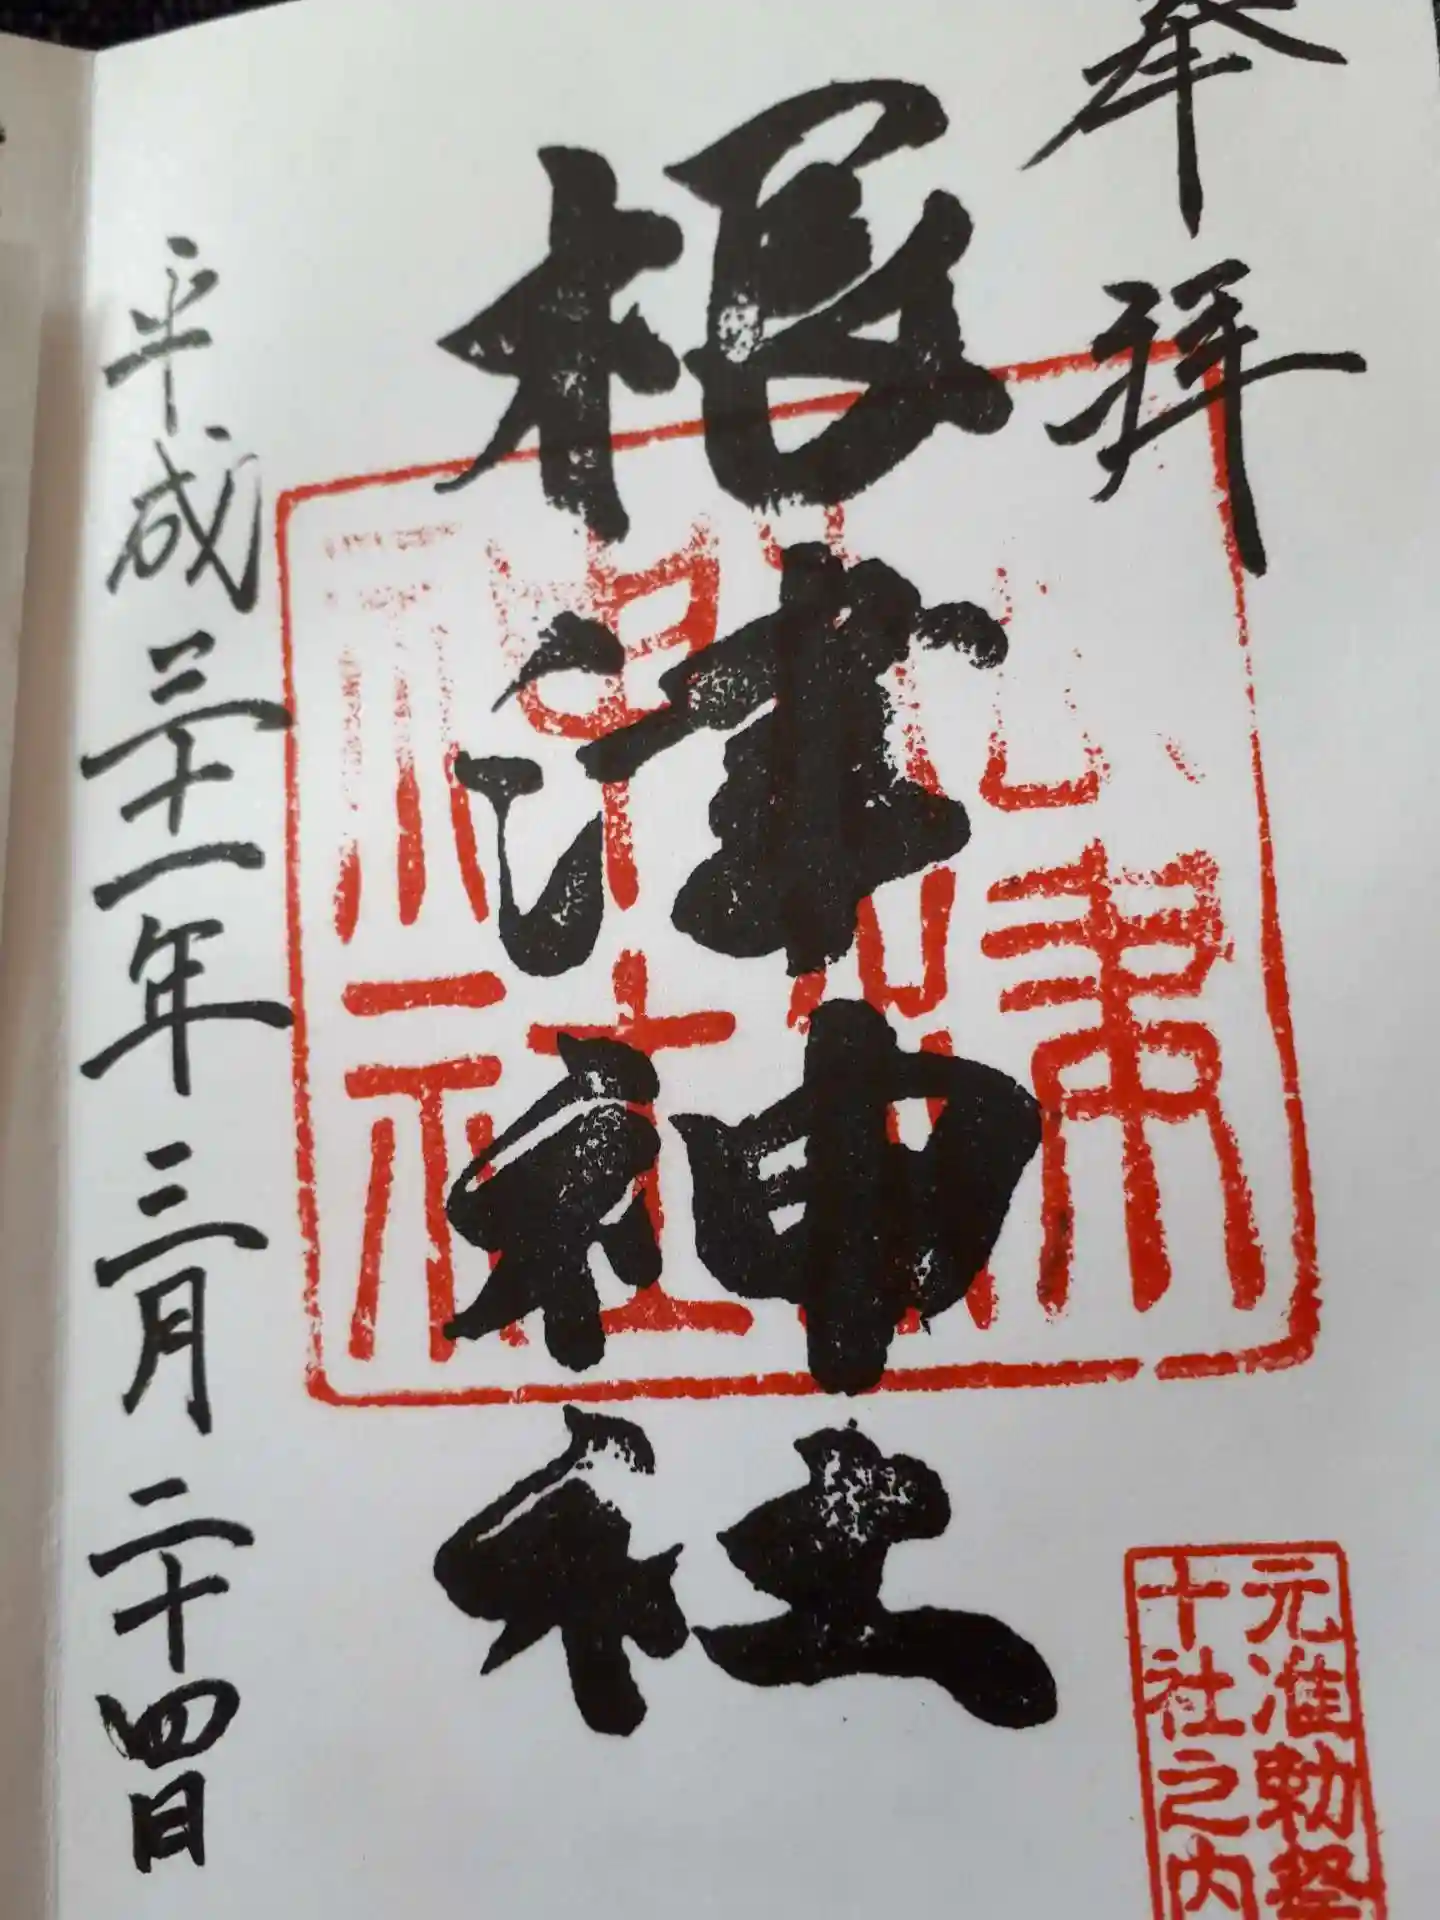 奉拝
元准勅祭
十社之内
根津神社
根津神社
平成三十一年三月二十四日